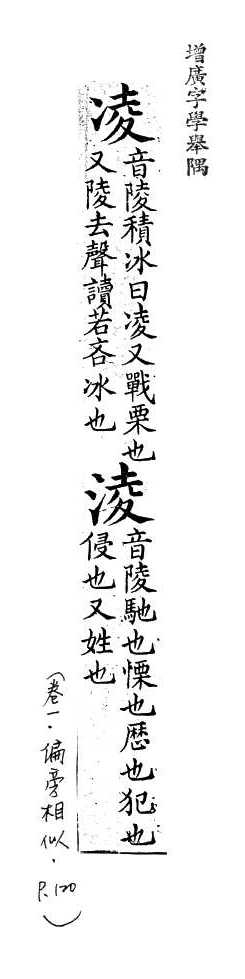 增廣字學舉隅
凌 音陵積冰曰凌又戰栗也
又陵去聲讀若吝冰也
淩 音陵馳也慄也歷也犯也
侵也又姓也
(卷一.偏旁相似.P.120)